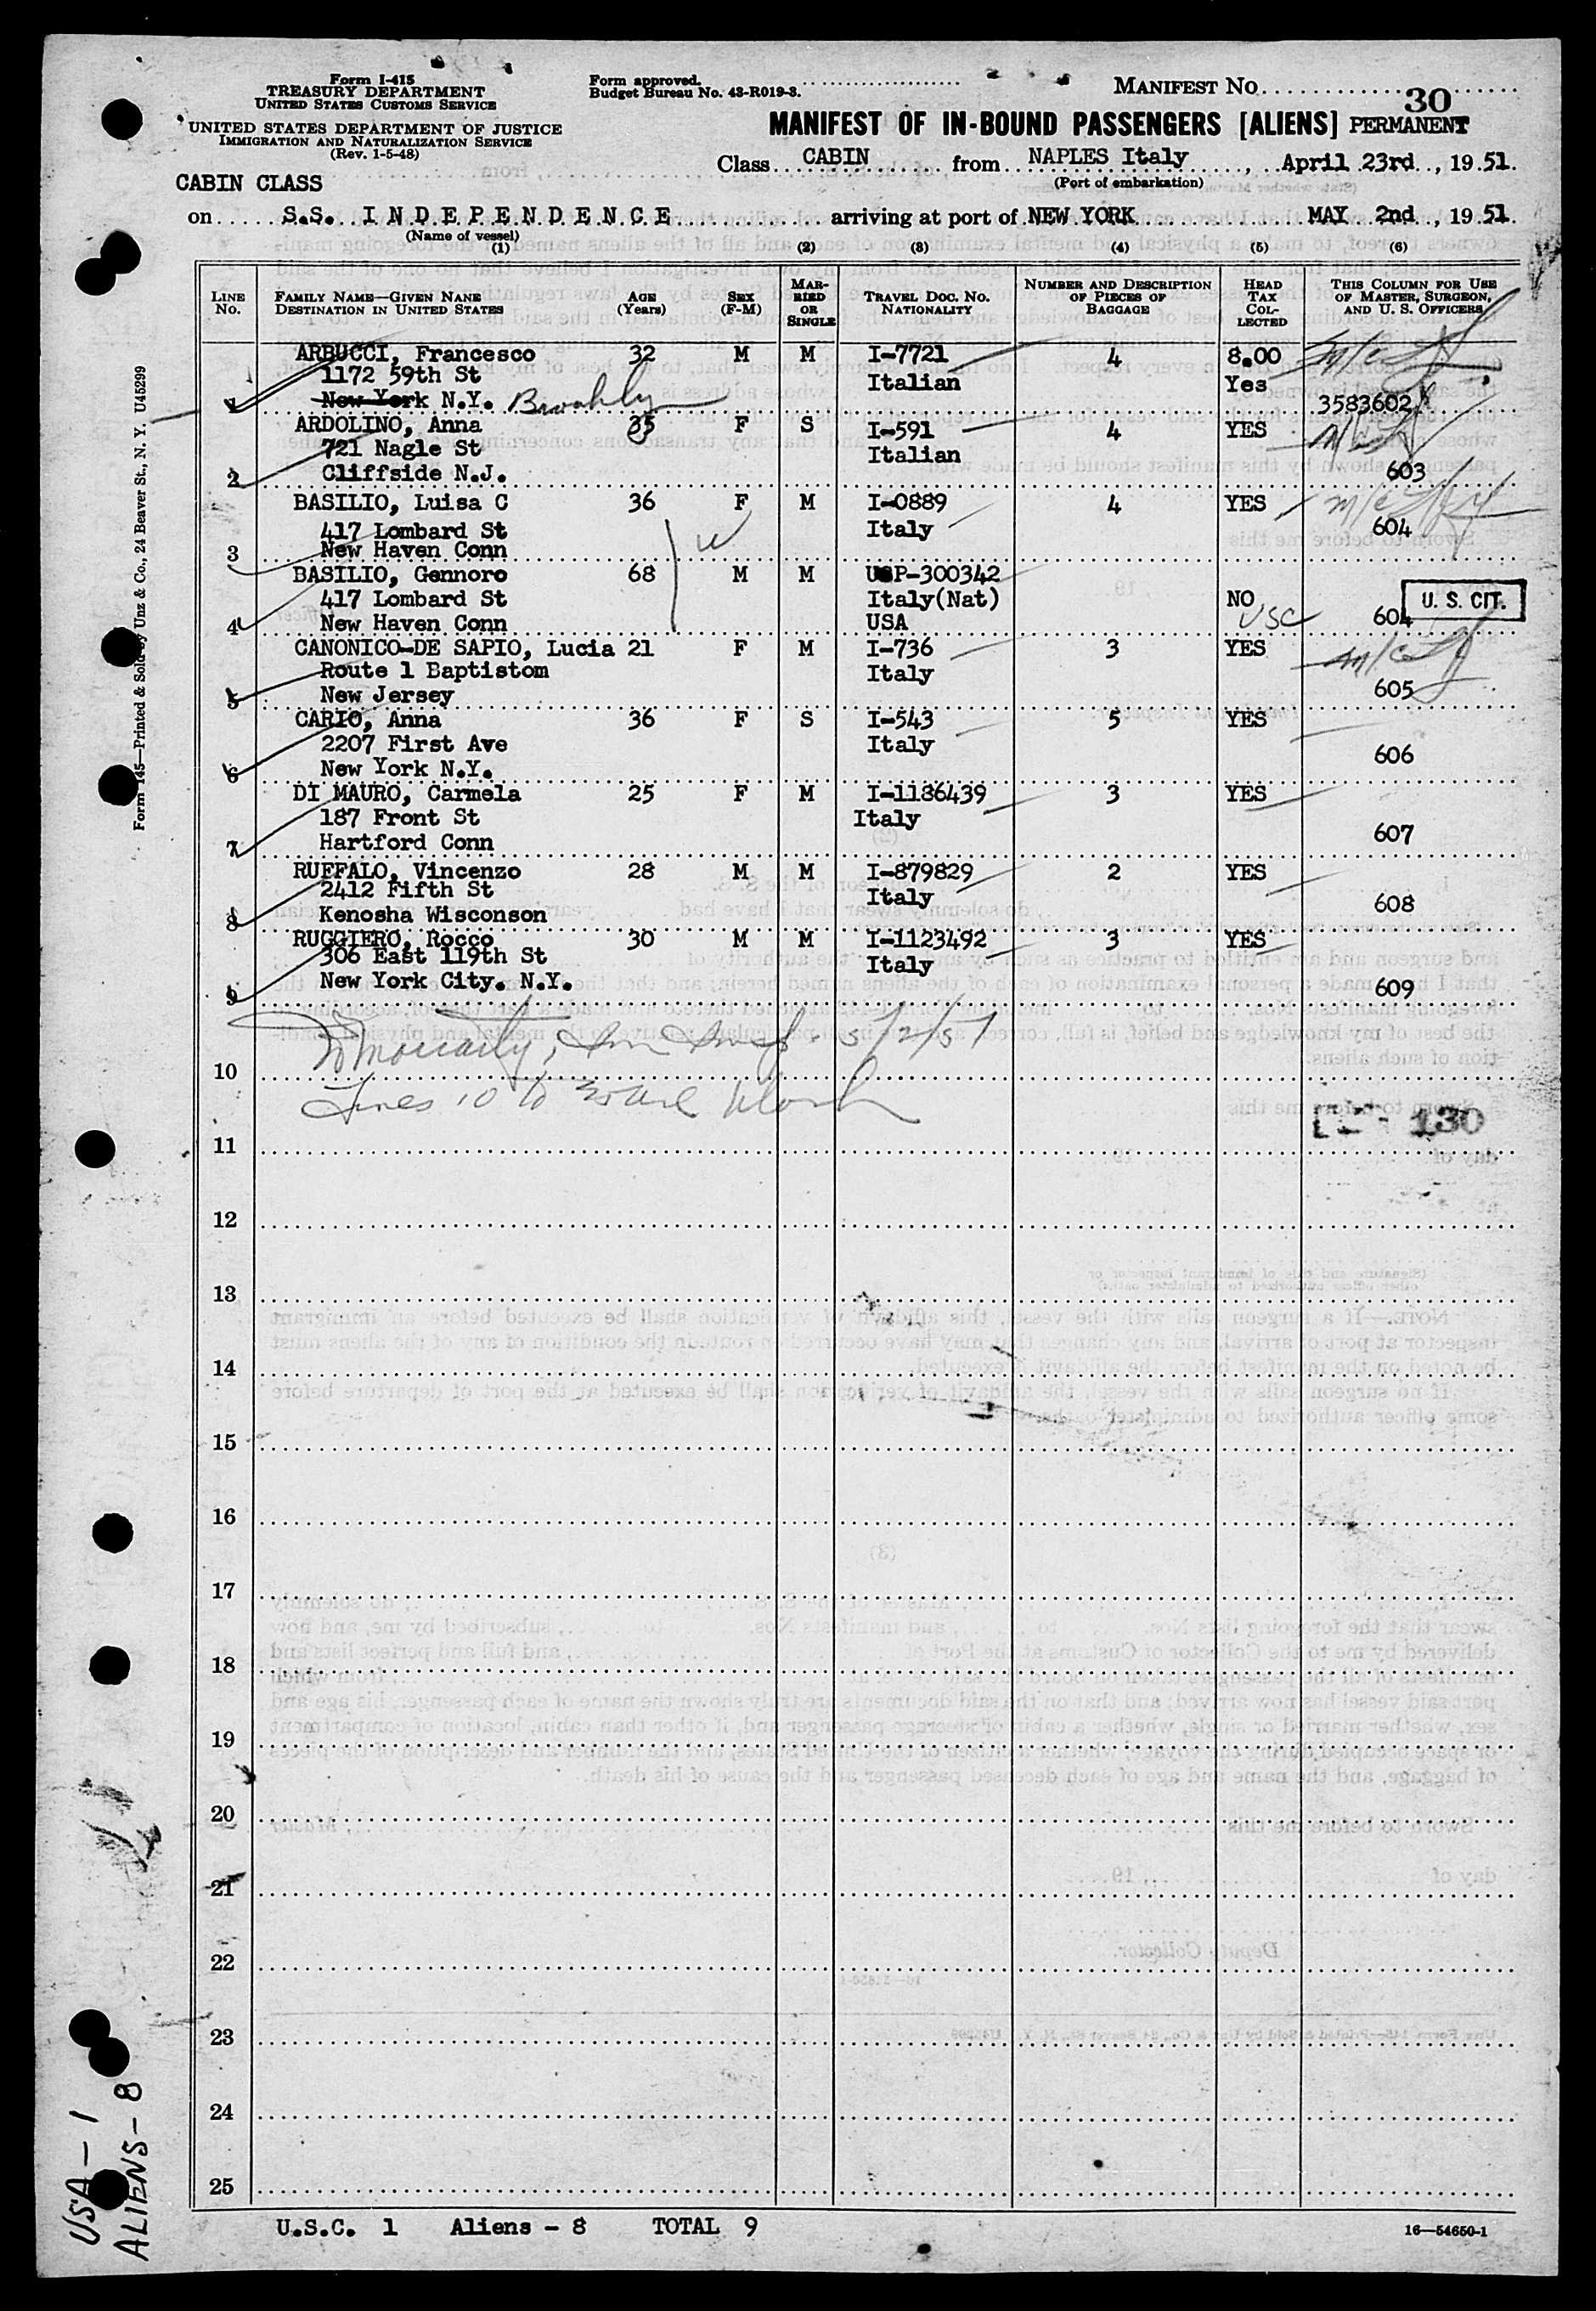 Form I-415
TREASURY DEPARTMENT
UNITED STATES CUSTOMS SERVICE
UNITED STATES DEPARTMENT OF JUSTICE
IMMIGRATION AND NATURALIZATION SERVICE
(Rev. 1-5-48)
Form approved.
Budget Bureau No. 43-R019-3.
MANIFEST NO. 30
MANIFEST OF IN-BOUND PASSENGERS [ALIENS] PERMANENT
Class CABIN from NAPLES Italy, April 23rd, 1951.
(Port of embarkation)
CABIN CLASS
on S.S. INDEPENDENCE arriving at port of NEW YORK MAY 2nd, 1951.
(Name of vessel)
(1) (2) (3) (4) (5) (6)
LINE NO.
FAMILY NAME—GIVEN NANE
DESTINATION IN UNITED STATES
AGE (Years)
SEX (F-M)
MARRIED OR SINGLE
TRAVEL DOC. NO.
NATIONALITY
NUMBER AND DESCRIPTION OF PIECES OF BAGGAGE
HEAD TAX COLLECTED
THIS COLUMN FOR USE OF MASTER, SURGEON, AND U. S. OFFICERS
ARBUCCI, Francesco 32 M M I-7721 4 8.00
1172 59th St Italian Yes
1 New York N.Y. Brooklyn 3583602
ARDOLINO, Anna 35 F S I-591 4 YES
721 Nagle St Italian
2 Cliffside N.J. 603
BASILIO, Luisa C 36 F M I-0889 4 YES
417 Lombard St Italy 604
3 New Haven Conn
BASILIO, Gennoro 68 M M USP-300342
417 Lombard St Italy(Nat) NO U. S. CIT.
4 New Haven Conn USA USC 604
CANONICO-DE SAPIO, Lucia 21 F M I-736 3 YES
Route 1 Baptistom Italy
5 New Jersey 605
CARIO, Anna 36 F S I-543 5 YES
2207 First Ave Italy
6 New York N.Y. 606
DI MAURO, Carmela 25 F M I-1186439 3 YES
187 Front St Italy
7 Hartford Conn 607
RUFFALO, Vincenzo 28 M M I-879829 2 YES
2412 Fifth St Italy
8 Kenosha Wisconson 608
RUGGIERO, Rocco 30 M M I-1123492 3 YES
306 East 119th St Italy
9 New York City. N.Y. 609
5/2/51
10
Lines 10 to
130
11
12
13
14
15
16
17
18
19
20
21
22
23
24
25
U.S.C. 1 Aliens - 8 TOTAL 9
16—54650-1
Form 145—Printed & Sold by Unz & Co., 24 Beaver St., N. Y. U45299
USA - 1
ALIENS - 8